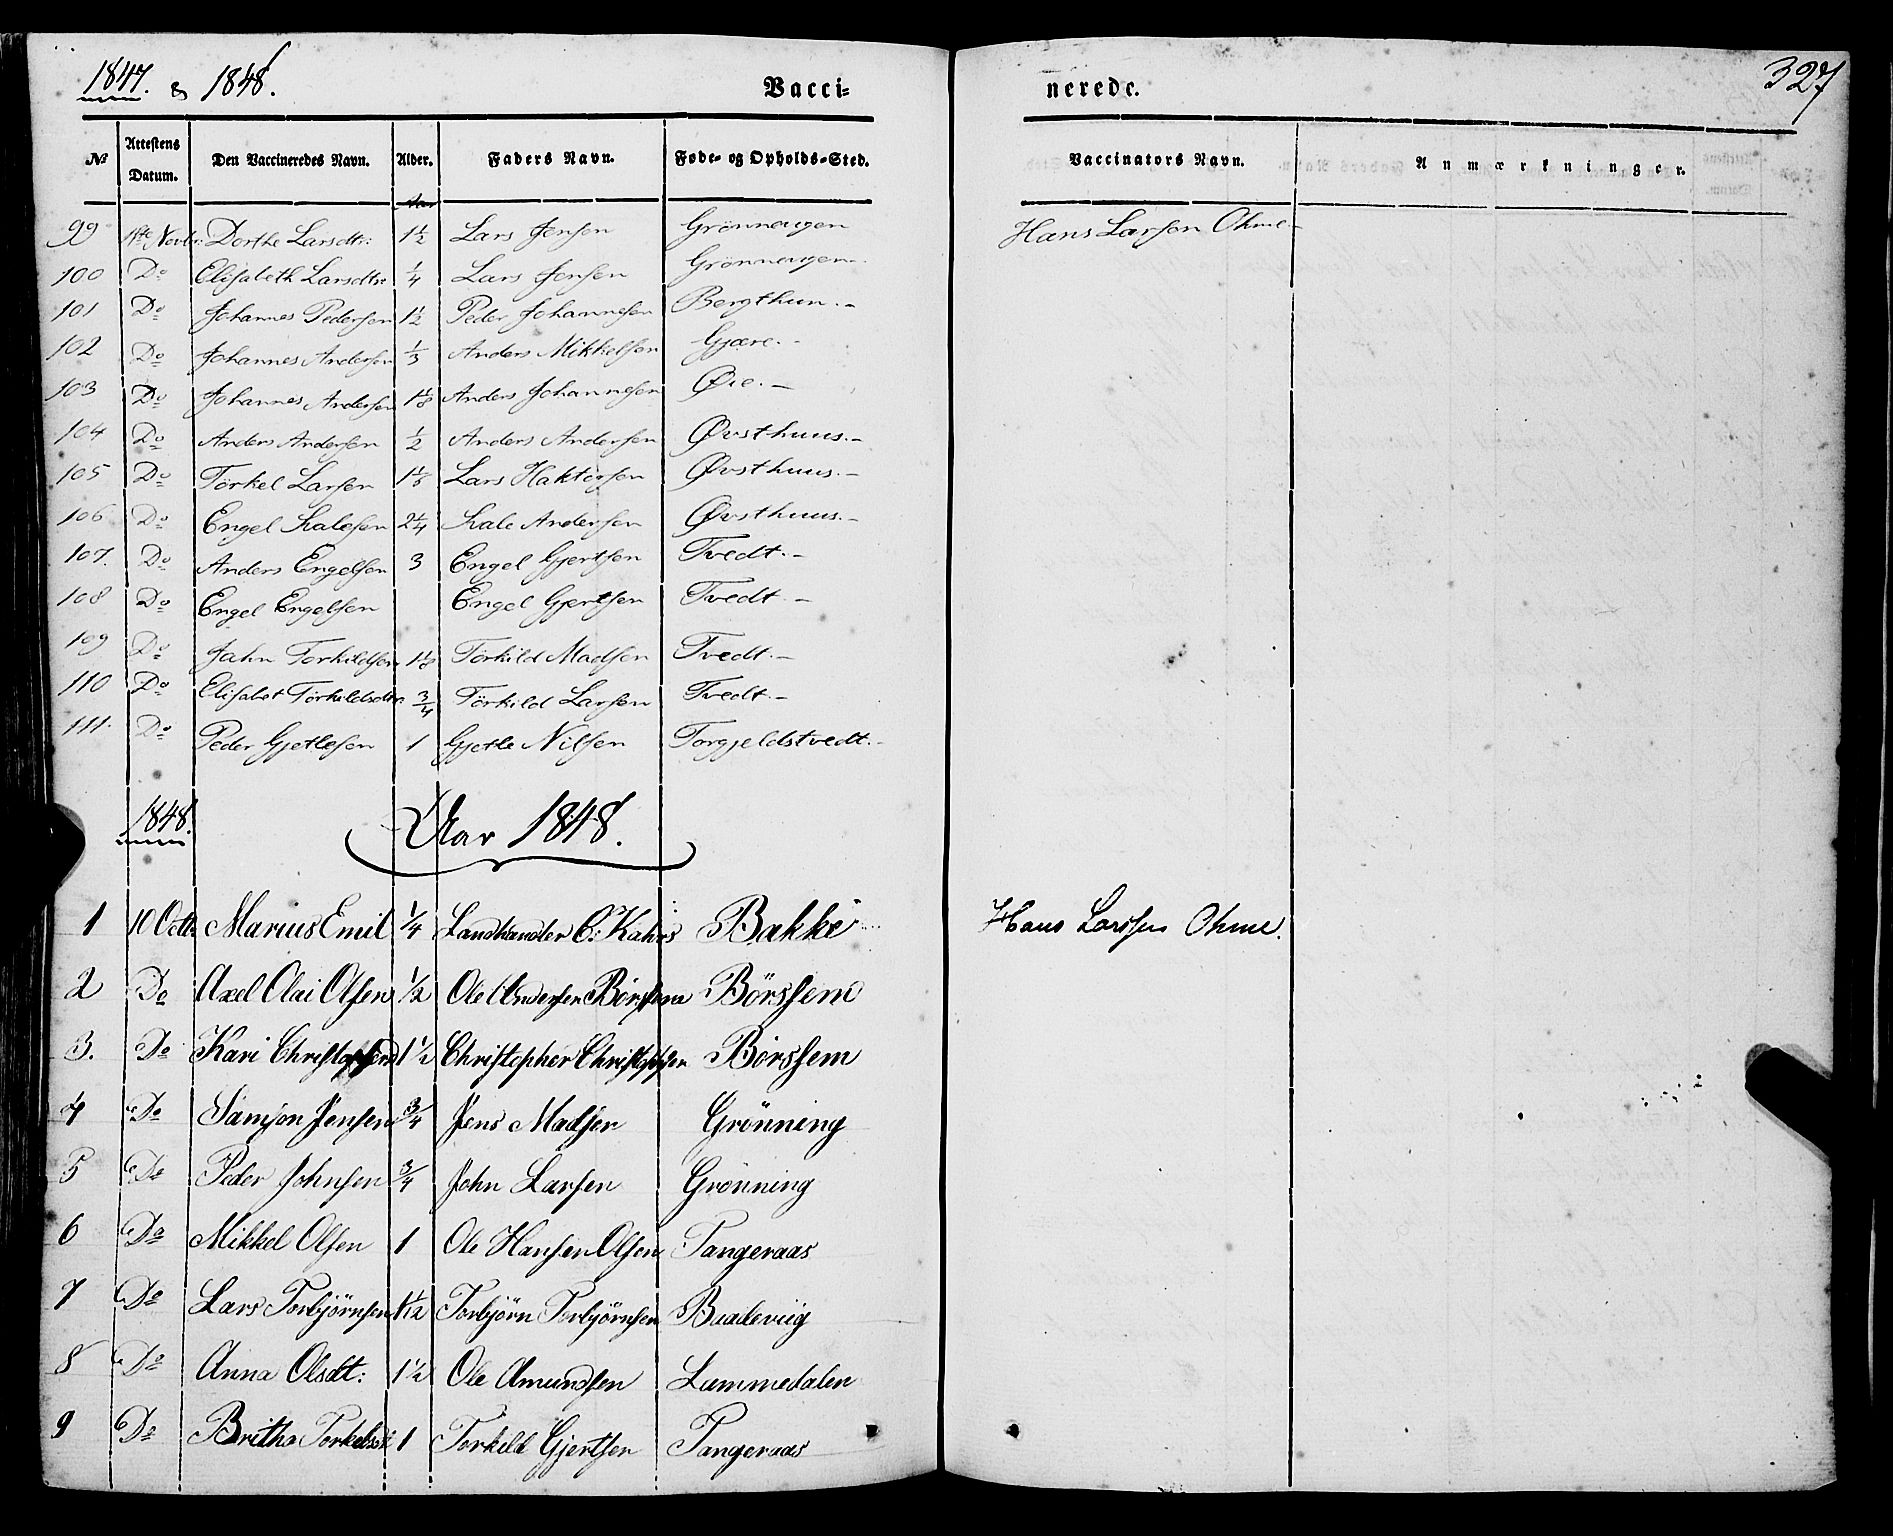 1847. & 1848.
Vacci-
nerede.
327
No
Attestens Datum.
Den Vaccineredes Navn.
Alder.
Faders Navn.
Føde- og Opholds-Sted.
Vaccinators Navn.
Anmærkninger.
Aar
99 Novbr: Dorthe Larsdtr: 1½ Lars Jensen Grönnevigen Hans Larsen Ohme
100 Do Elisabeth Larsdtr: ¼ Lars Jensen Grönnevigen.
101 Do Johannes Pedersen 1½ Peder Johannesen Bergthun.-
102 Do Johannes Andersen ⅓ Anders Mikkelsen Gjære.-
103 Do Johannes Andersen 1⅛ Anders Johannesen Øie.-
104 Do Anders Andersen ½ Anders Andersen Øvsthuus.-
105 Do Törkel Larsen Lars Haktorsen Øvsthuus.-
106 Do Engel Salesen 2¼ Sale Andersen Øvsthuus.-
107. Do Anders Engelsen 3 Engel Gjertsen Tvedt.-
108 Do Engel Engelsen Engel Gjertsen Tvedt.-
109 Do Jahn Torkildsen 1⅛ Törkild Madsen Tvedt.-
110 Do Elisabet Törkildsdtr ¾ Törkild Larsen Tvedt.-
111. Do Peder Gjetlesen 1 Gjetle Nilsen Torgjeldstvedt.-
1848. Aar 1848.
1 10 Octbr Marius Emil ¼ Landhandler C: Kahrs Bakke Hans Larssen Ohme.
2 Do Axel Olai Olsen ½ Ole Andersen Börssem Börssem
3. Do Kari 1½ Christopher Christophersen Börssem
4 Do Samson Jensen ¾ Jens Madsen Grönning
5 Do Peder Johnsen ¾ John Larsen Grönning
6 Do Mikkel Olsen 1 Ole Hansen Olsen Tangeraas
7 Do Lars Torbjörnsen 1½ Torbjörn Torbjörnsen Baadeviig
8 Do Anna Olsdt: 1½ Ole Amundsen Lammedalen
9 Do Britha Torkelsdt 1 Torkild Gjertsen Tangeraas